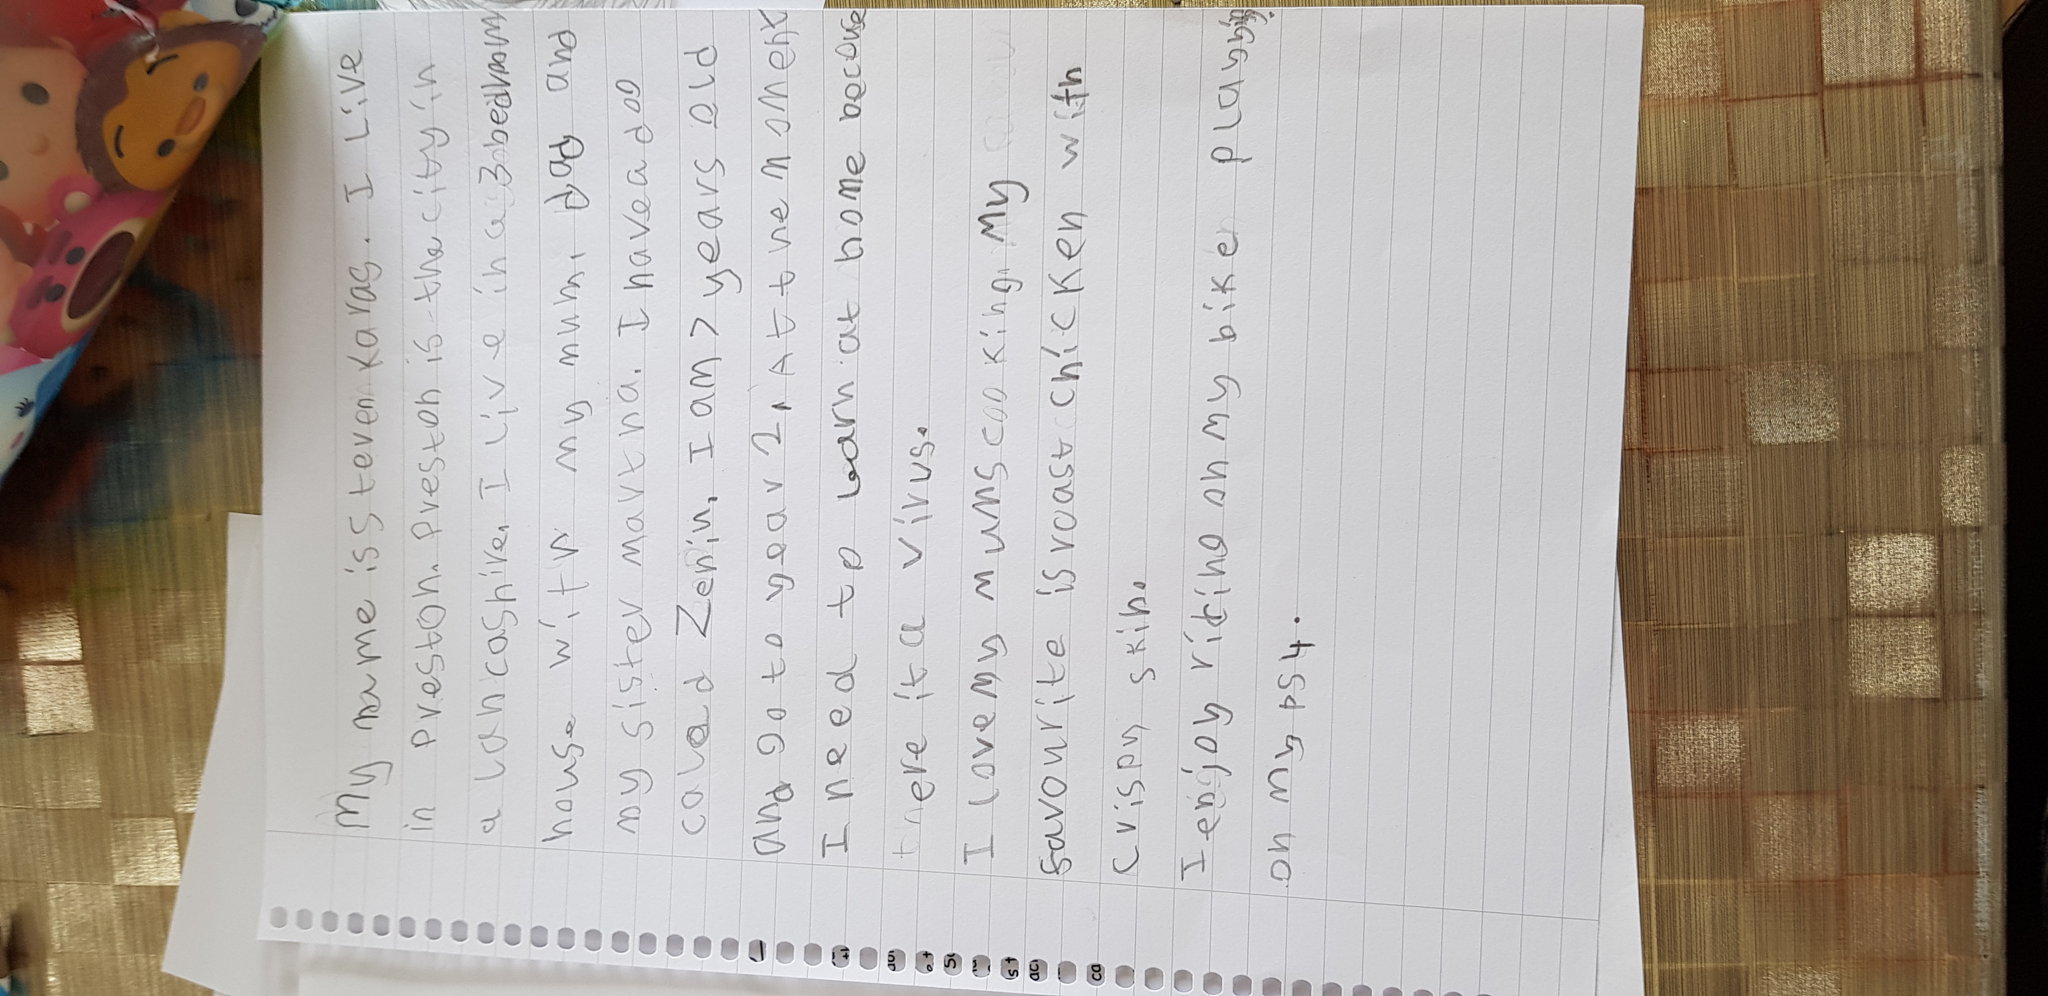 My name is Steven Karas. I Live
in Preston. Preston is the city in
a Lancashire. I Live in a 3 bedroom
house with my mum, dad and
my sister Martha. I have a dog
caled Zenin. I am 7 years old
and go to year 2. At the moment
I need to learn at home because
there it a virus.
I love my mums cooking. My
favourite is roast chicken with
crispy skin.
I enjoy riting on my bike playying
on my PS4.
st
ca